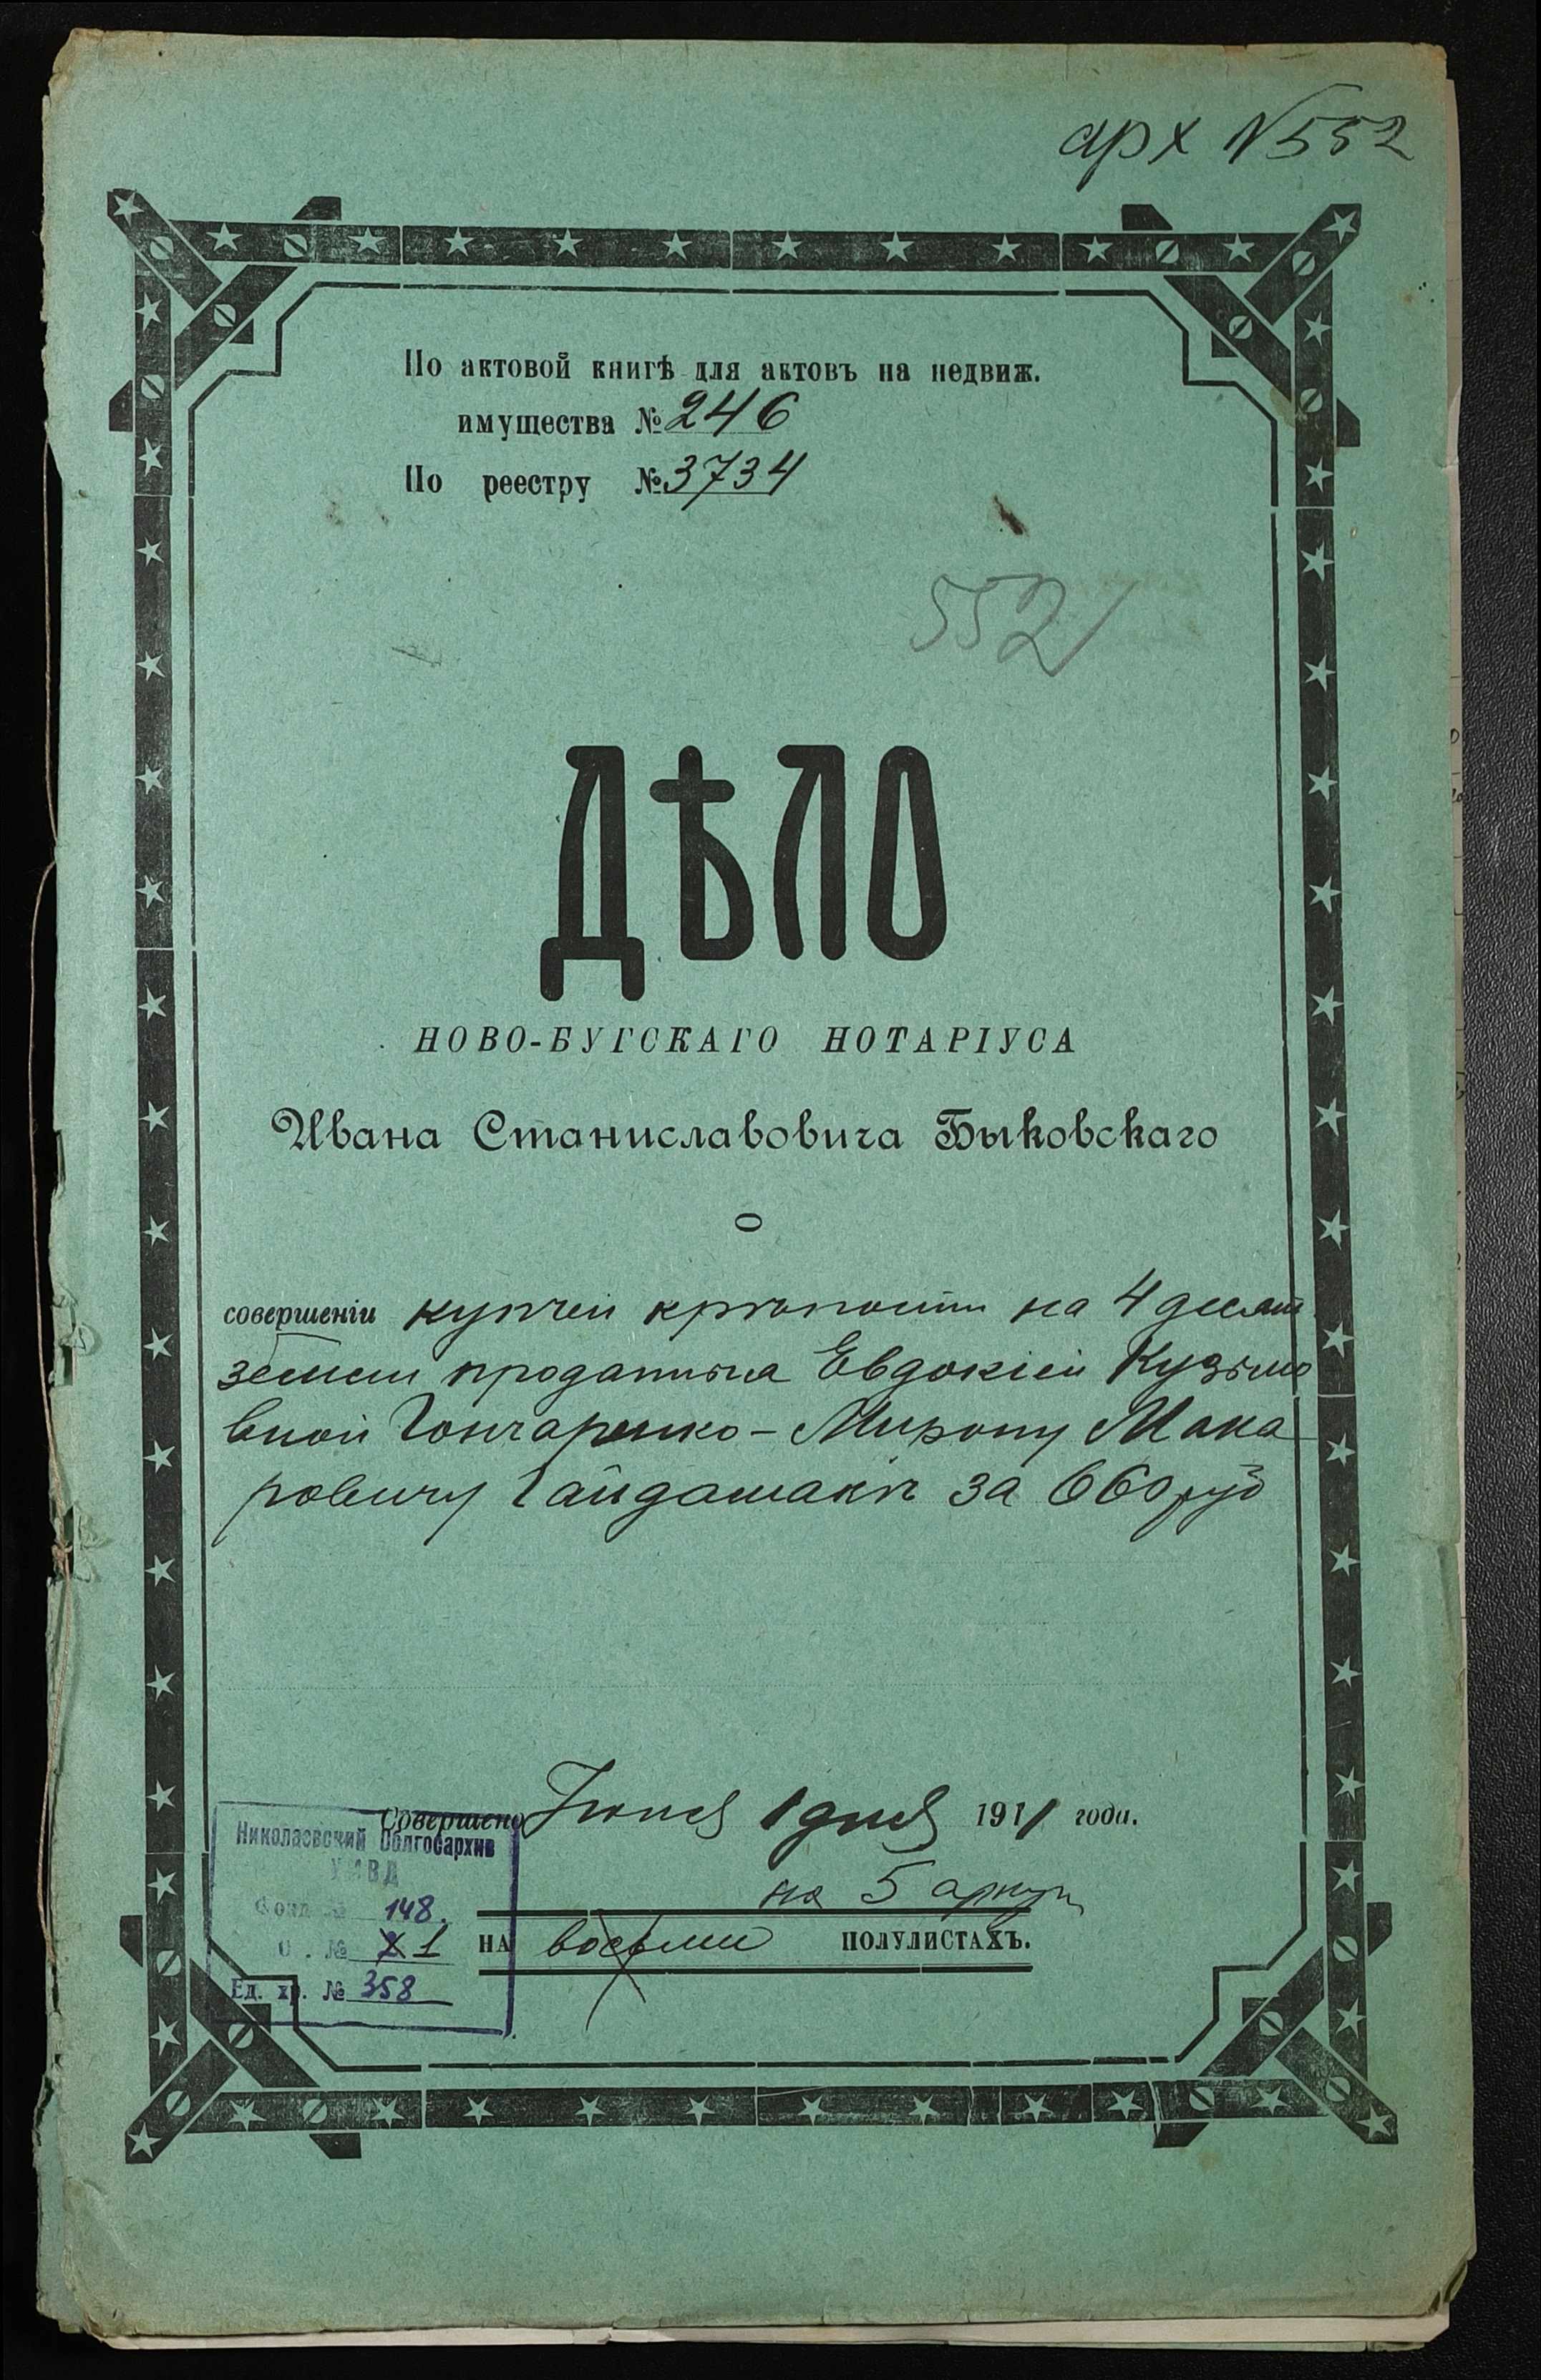 арх №552
По актовой книгѣ для актовъ на недвиж.
имущества № 246
По реестру № 3734
552
ДѢЛО
НОВО-БУГСКАГО НОТАРІУСА
Ивана Станиславовича Быковскаго
о
совершеніи купчей крѣпости на 4 десят.
земли проданныя Евдокіей Кузьмо
вной Гончаренко - Мирону Мака
ровичу Гайдамакѣ за 660 руб
Совершено Іюня 1 дня 1911 года.
на 5 аркуш
НА восьми ПОЛУЛИСТАХЪ.
Николаевский Облгосархив
УМВД
Фонд № 148.
О . № 1
Ед. хр. № 358